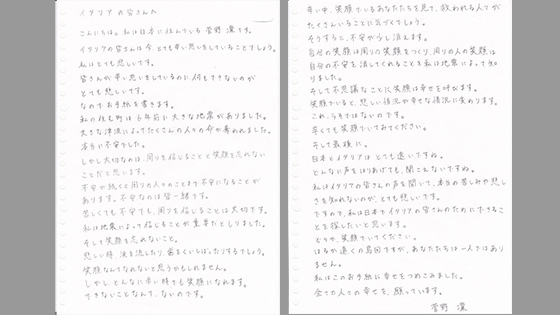 イタリアの皆さんへ
こんにちは。私は日本に住んでいる菅野 凜です。
イタリアの皆さんは今、とても辛い思いをしていることでしょう。
私はとても悲しいです。
皆さんが辛い思いをしているのに何もできないのが
とても悲しいです。
なのでお手紙を書きます。
私の住む町は6年前に大きな地震がありました。
大きな津波によってたくさんの人々の命が奪われました。
本当に不安でした。
しかし大切なのは、周りを信じることと笑顔を忘れない
ことだと思います。
不安が続くと周りの人々のことまで不安になることが
あります。不安なのは皆一緒です。
苦しくても不安でも、周りを信じることは大切です。
私は地震によって信じることが重要だとしりました。
そして笑顔を忘れないこと。
悲しい時、涙を流したり、歯をくいしばったりするでしょう。
笑顔なんてなれないと思うかもしれません。
しかし、どんなに辛い時でも笑顔になれます。
できないことなんて、ないのです。
辛い中、笑顔でいるあなたたちを見て、救われる人々が
たくさんいることに気づくでしょう。
そうすると、不安が少し消えます。
自分の笑顔は周りの笑顔をつくり、周りの人の笑顔は
自分の不安を消してくれることを私は地震によって知
りました。
そして不思議なことに笑顔は幸せを呼びます。
笑顔でいると、悲しい状況が幸せな状況に変わります。
これ、うそではないのです。
辛くても笑顔でいてください。
そして最後に。
日本とイタリアは とても遠いですね。
どんな声をはりあげても、聞こえないですね。
私はイタリアの皆さんの声を聞いて、本当の苦しみや悲し
さを知れないのが、とても悲しいです。
ですので、私は日本でイタリアの皆さんのためにできるこ
とを探したいと思います。
どうか、笑顔でいてください。
はるか遠くの島国ですが、あなたたちは一人ではあり
ません。
私はこのお手紙に幸せをつめこみました。
全ての人々の幸せを、願っています。
菅野 凜